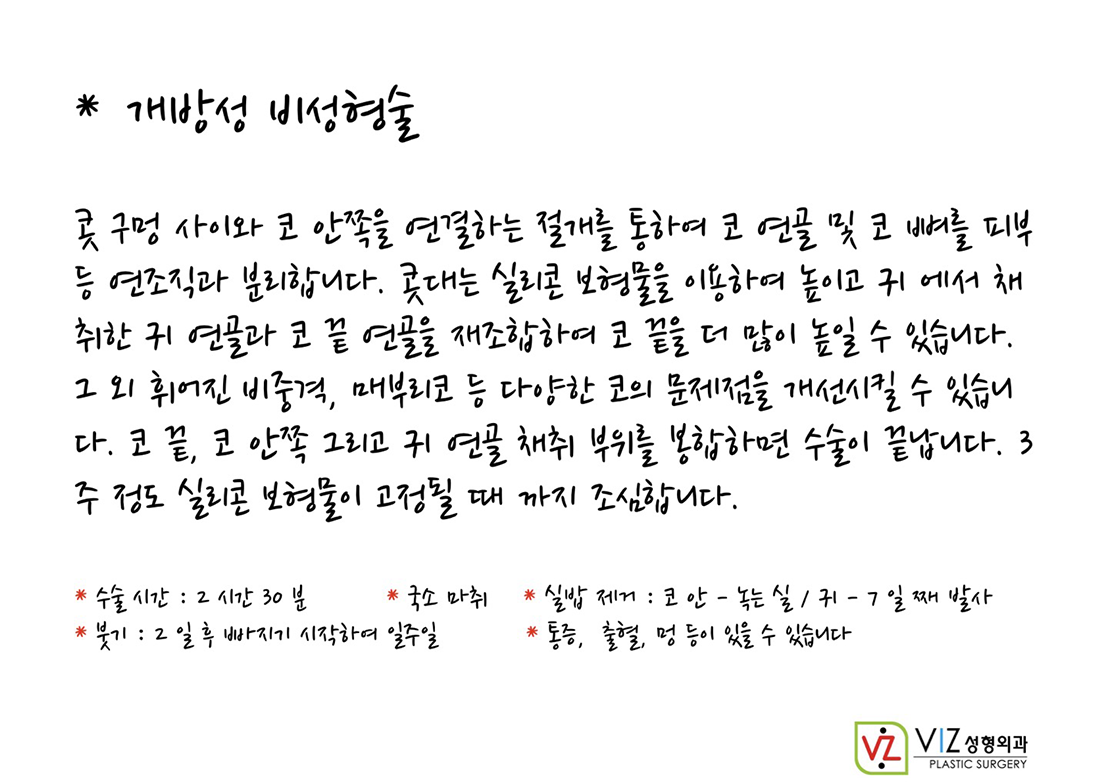 * 개방성 비성형술
콧 구멍 사이와 코 안쪽을 연결하는 절개를 통하여 코 연골 및 코 뼈를 피부
등 연조직과 분리합니다. 콧대는 실리콘 보형물을 이용하여 높이고 귀 에서 채
취한 귀 연골과 코 끝 연골을 재조합하여 코 끝을 더 많이 높일 수 있습니다.
그 외 휘어진 비중격, 매부리코 등 다양한 코의 문제점을 개선시킬 수 있습니
다. 코 끝, 코 안쪽 그리고 귀 연골 채취 부위를 봉합하면 수술이 끝납니다. 3
주 정도 실리콘 보형물이 고정될 때 까지 조심합니다.
* 수술 시간 : 2 시간 30 분 * 국소 마취 * 실밥 제거 : 코 안 - 녹는 실 / 귀 - 7 일 째 발사
* 붓기 : 2 일 후 빠지기 시작하여 일주일 * 통증, 출혈, 멍 등이 있을 수 있습니다
VZ VIZ성형외과
PLASTIC SURGERY